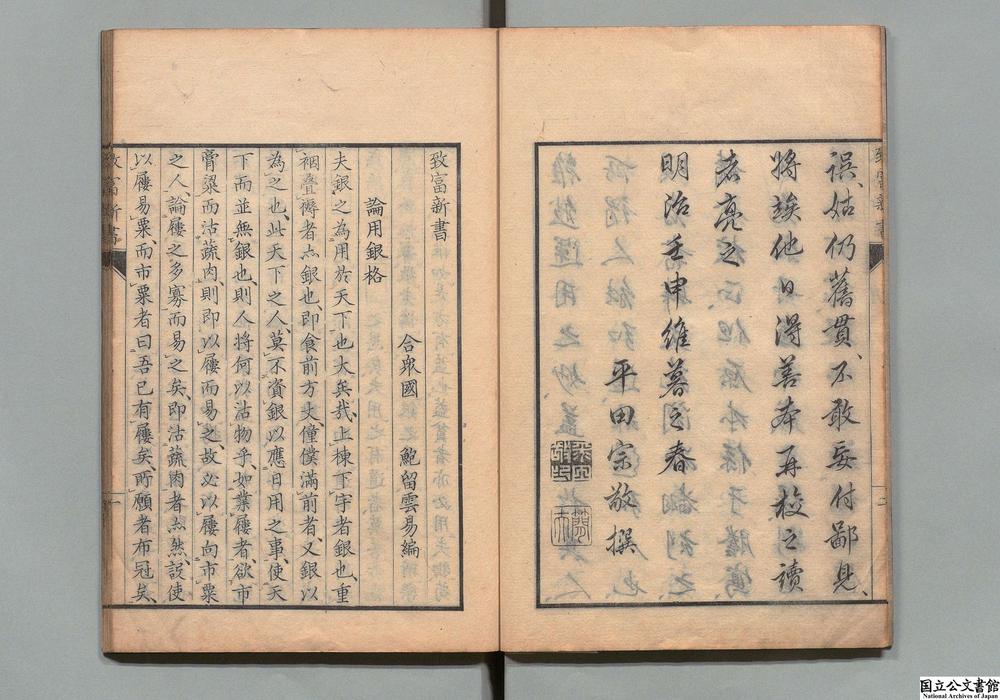 誤、姑仍舊貫、不敢妄付鄙見、
將竢他日得善本再校之、讀
者亮之
明治壬申維暮之春
平田宗敬撰
致富新書
合衆國 鮑留雲易編
論用銀格
夫銀之為用於天下也大矣哉、上棟下宇者銀也、重
裀疊褥者亦銀也、即食前方丈、僮僕滿前者、又銀以
為之也、此天下之人、莫不資銀以應日用之事、使天
下而並無銀也、則人將何以沽物乎、如業屨者、欲市
膏粱而沽蔬肉、則即以屨而易之、故必以屨向市粟
之人、論屨之多寡而易之矣、即沽蔬肉者亦然、設使
以屨易粟、而市粟者曰、吾已有屨矣、所願者布冠矣、
致富新書
一
国立公文書館
National Archives of Japan